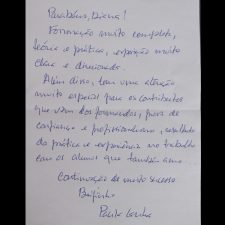 Parabéns, Diana!
Formação muito completa,
teórica e prática, exposição muito
clara e direcionada.
Além disso, tem uma atenção
muito especial para os contributos
que vêm dos formandos, prova de
confiança e profissionalismo, resultado
da prática e experiência no trabalho
com os alunos que também ama.
Continuação de muito sucesso
Beijinho
Paula